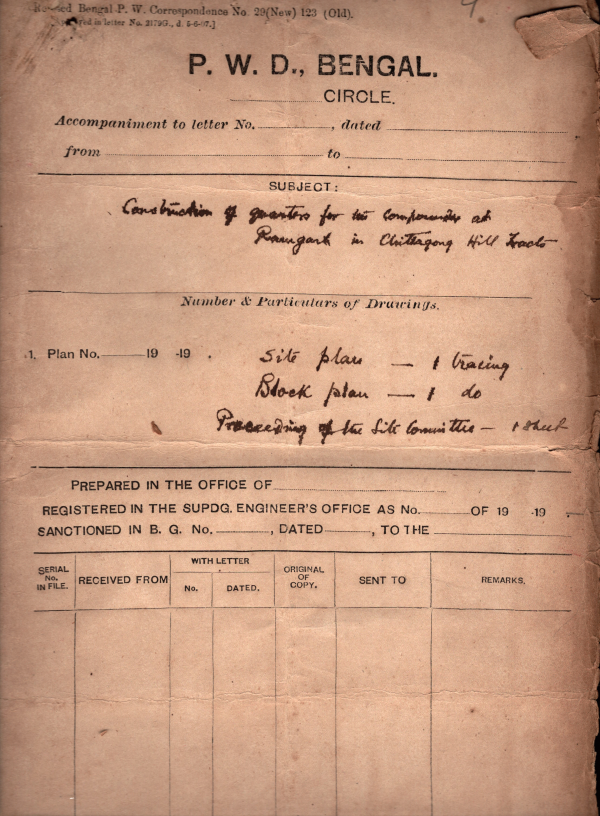 Revised Bengal P. W. Correspondence No. 29(New) 123 (Old).
in letter No. 2179G., d. 5-6-07.]
P. W. D., BENGAL.
CIRCLE.
Accompaniment to letter No. , dated
from to
SUBJECT:
Construction of quarters for the compounder at
Ramgarh in Chittagong Hill Tracts
Number & Particulars of Drawings.
1. Plan No. 19 -19 .
Site plan — 1 tracing
Block plan — 1 do
Proceeding of the Site Committee — 1 sheet
PREPARED IN THE OFFICE OF
REGISTERED IN THE SUPDG. ENGINEER'S OFFICE AS No. OF 19 -19
SANCTIONED IN B. G. No. , DATED , TO THE
SERIAL No. IN FILE. RECEIVED FROM WITH LETTER No. DATED. ORIGINAL OF COPY. SENT TO REMARKS.